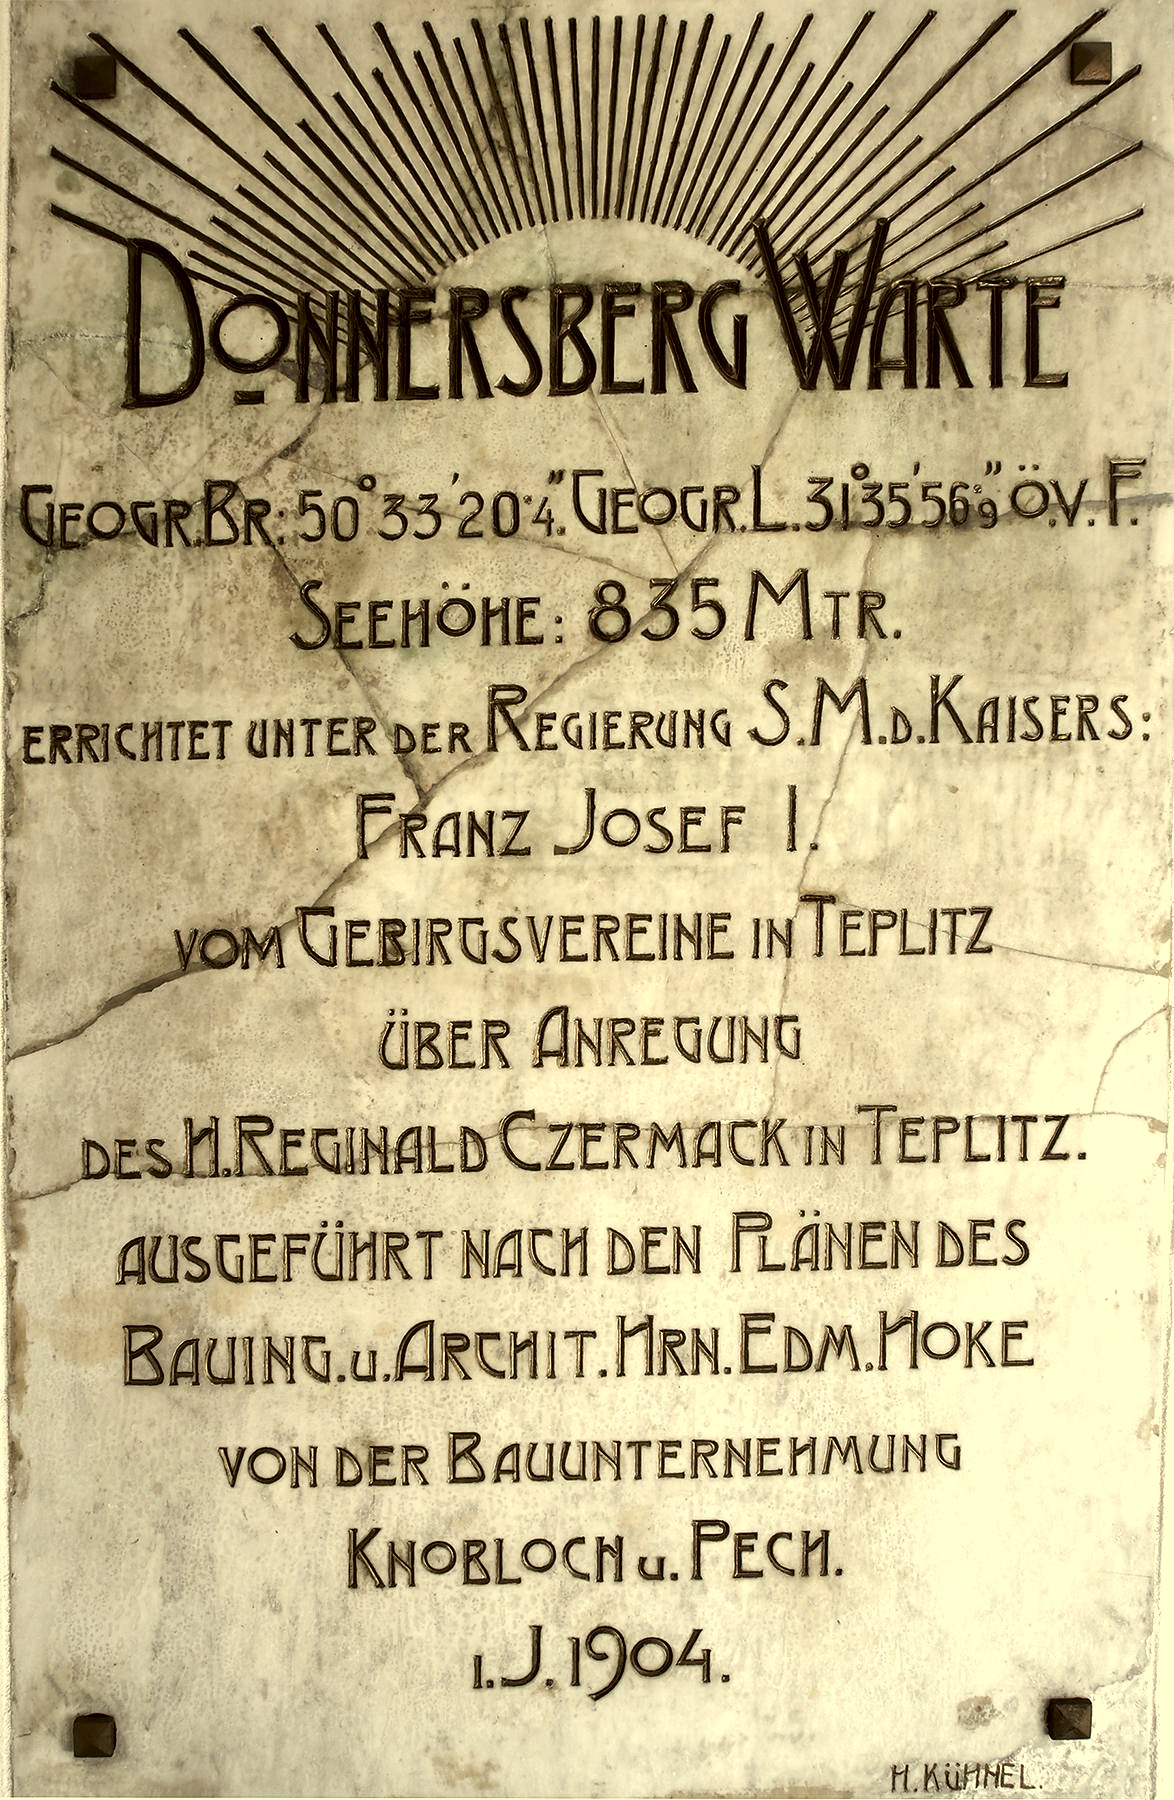 DONNERSBERG WARTE
GEOGR.BR: 50°33'20·4". GEOGR.L. 31°35'56·9" Ö.V.F.
SEEHÖHE: 835 MTR.
ERRICHTET UNTER DER REGIERUNG S.M.D. KAISERS:
FRANZ JOSEF I.
VOM GEBIRGSVEREINE IN TEPLITZ
ÜBER ANREGUNG
DES H. REGINALD CZERMACK IN TEPLITZ.
AUSGEFÜHRT NACH DEN PLÄNEN DES
BAUING. U. ARCHIT. HRN. EDM. HOKE
VON DER BAUUNTERNEHMUNG
KNOBLOCH U. PECH.
I.J. 1904.
H. KÜHNEL.